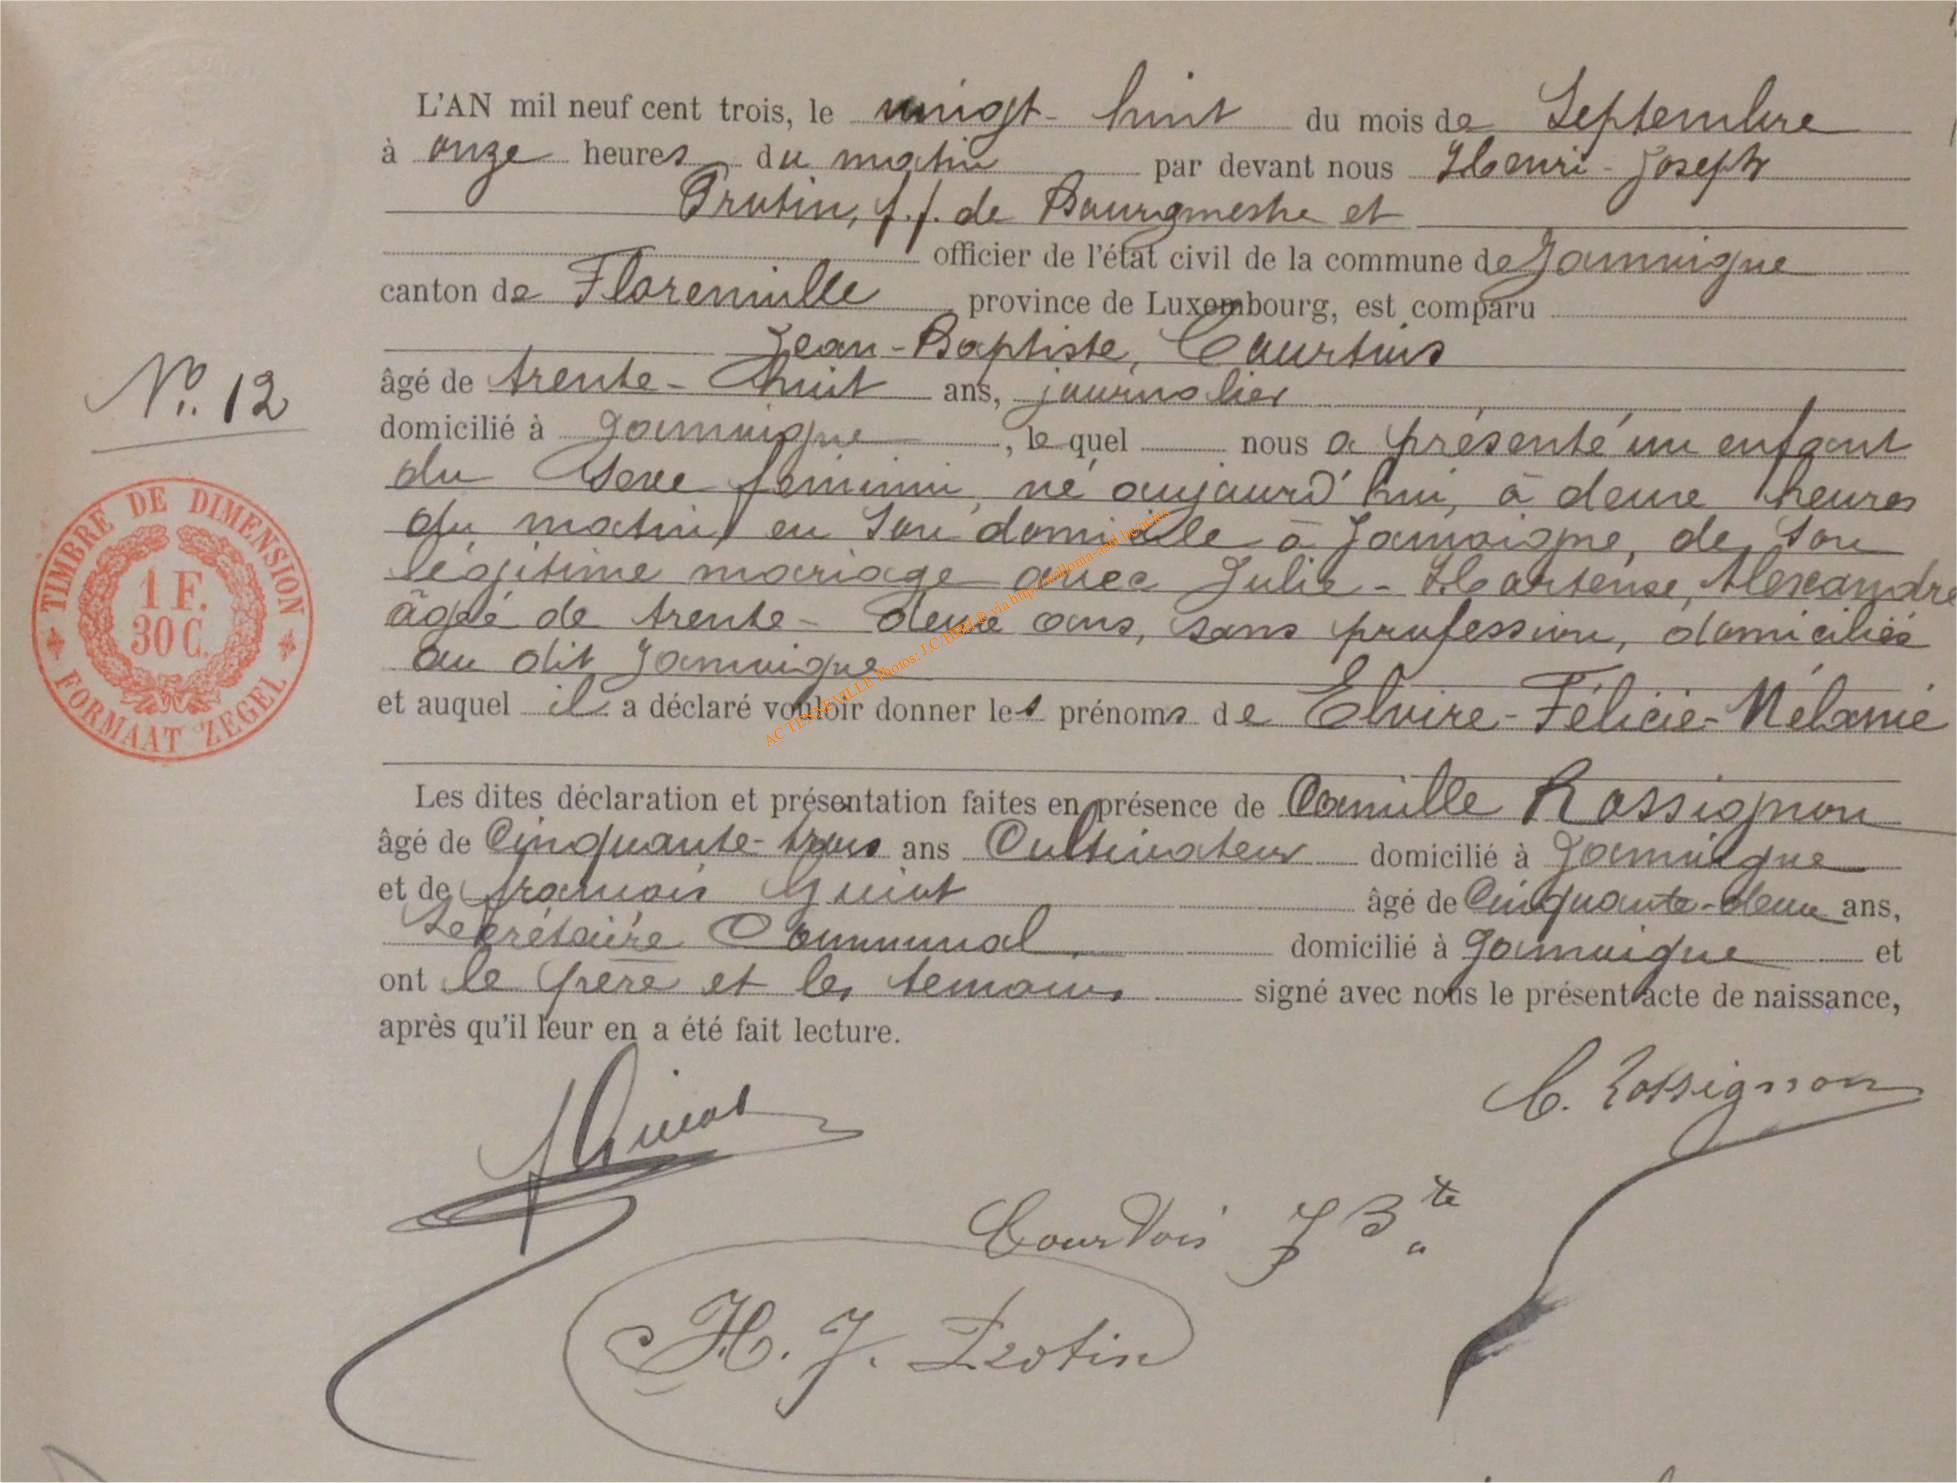 L'AN mil neuf cent trois, le vingt-huit du mois de Septembre
à onze heures du matin par devant nous Henri-Joseph
Protin, f.f. de Bourgmestre et
officier de l'état civil de la commune de Jamoigne
canton de Florenville province de Luxembourg, est comparu
Jean-Baptiste, Courtois
âgé de trente-huit ans, journalier
domicilié à Jamoigne, le quel nous a présenté un enfant
du sexe féminin, né aujourd'hui, à deux heures
du matin, en son domicile à Jamoigne, de son
légitime mariage avec Julie-Hortense, Alexandre
âgée de trente-deux ans, sans profession, domiciliés
au dit Jamoigne
et auquel il a déclaré vouloir donner les prénoms de Elvire-Félicie-Mélanie
Les dites déclaration et présentation faites en présence de Camille Rossignon
âgé de Cinquante-trois ans Cultivateur domicilié à Jamoigne
et de François Guiot âgé de Cinquante-deux ans,
Secrétaire Communal domicilié à Jamoigne et
ont le père et les témoins signé avec nous le présent acte de naissance,
après qu'il leur en a été fait lecture.
No. 12
TIMBRE DE DIMENSION
1 F.
30 C.
FORMAAT ZEGEL
C. Rossignon
Guiot
Courtois J Bte
H. J. Protin